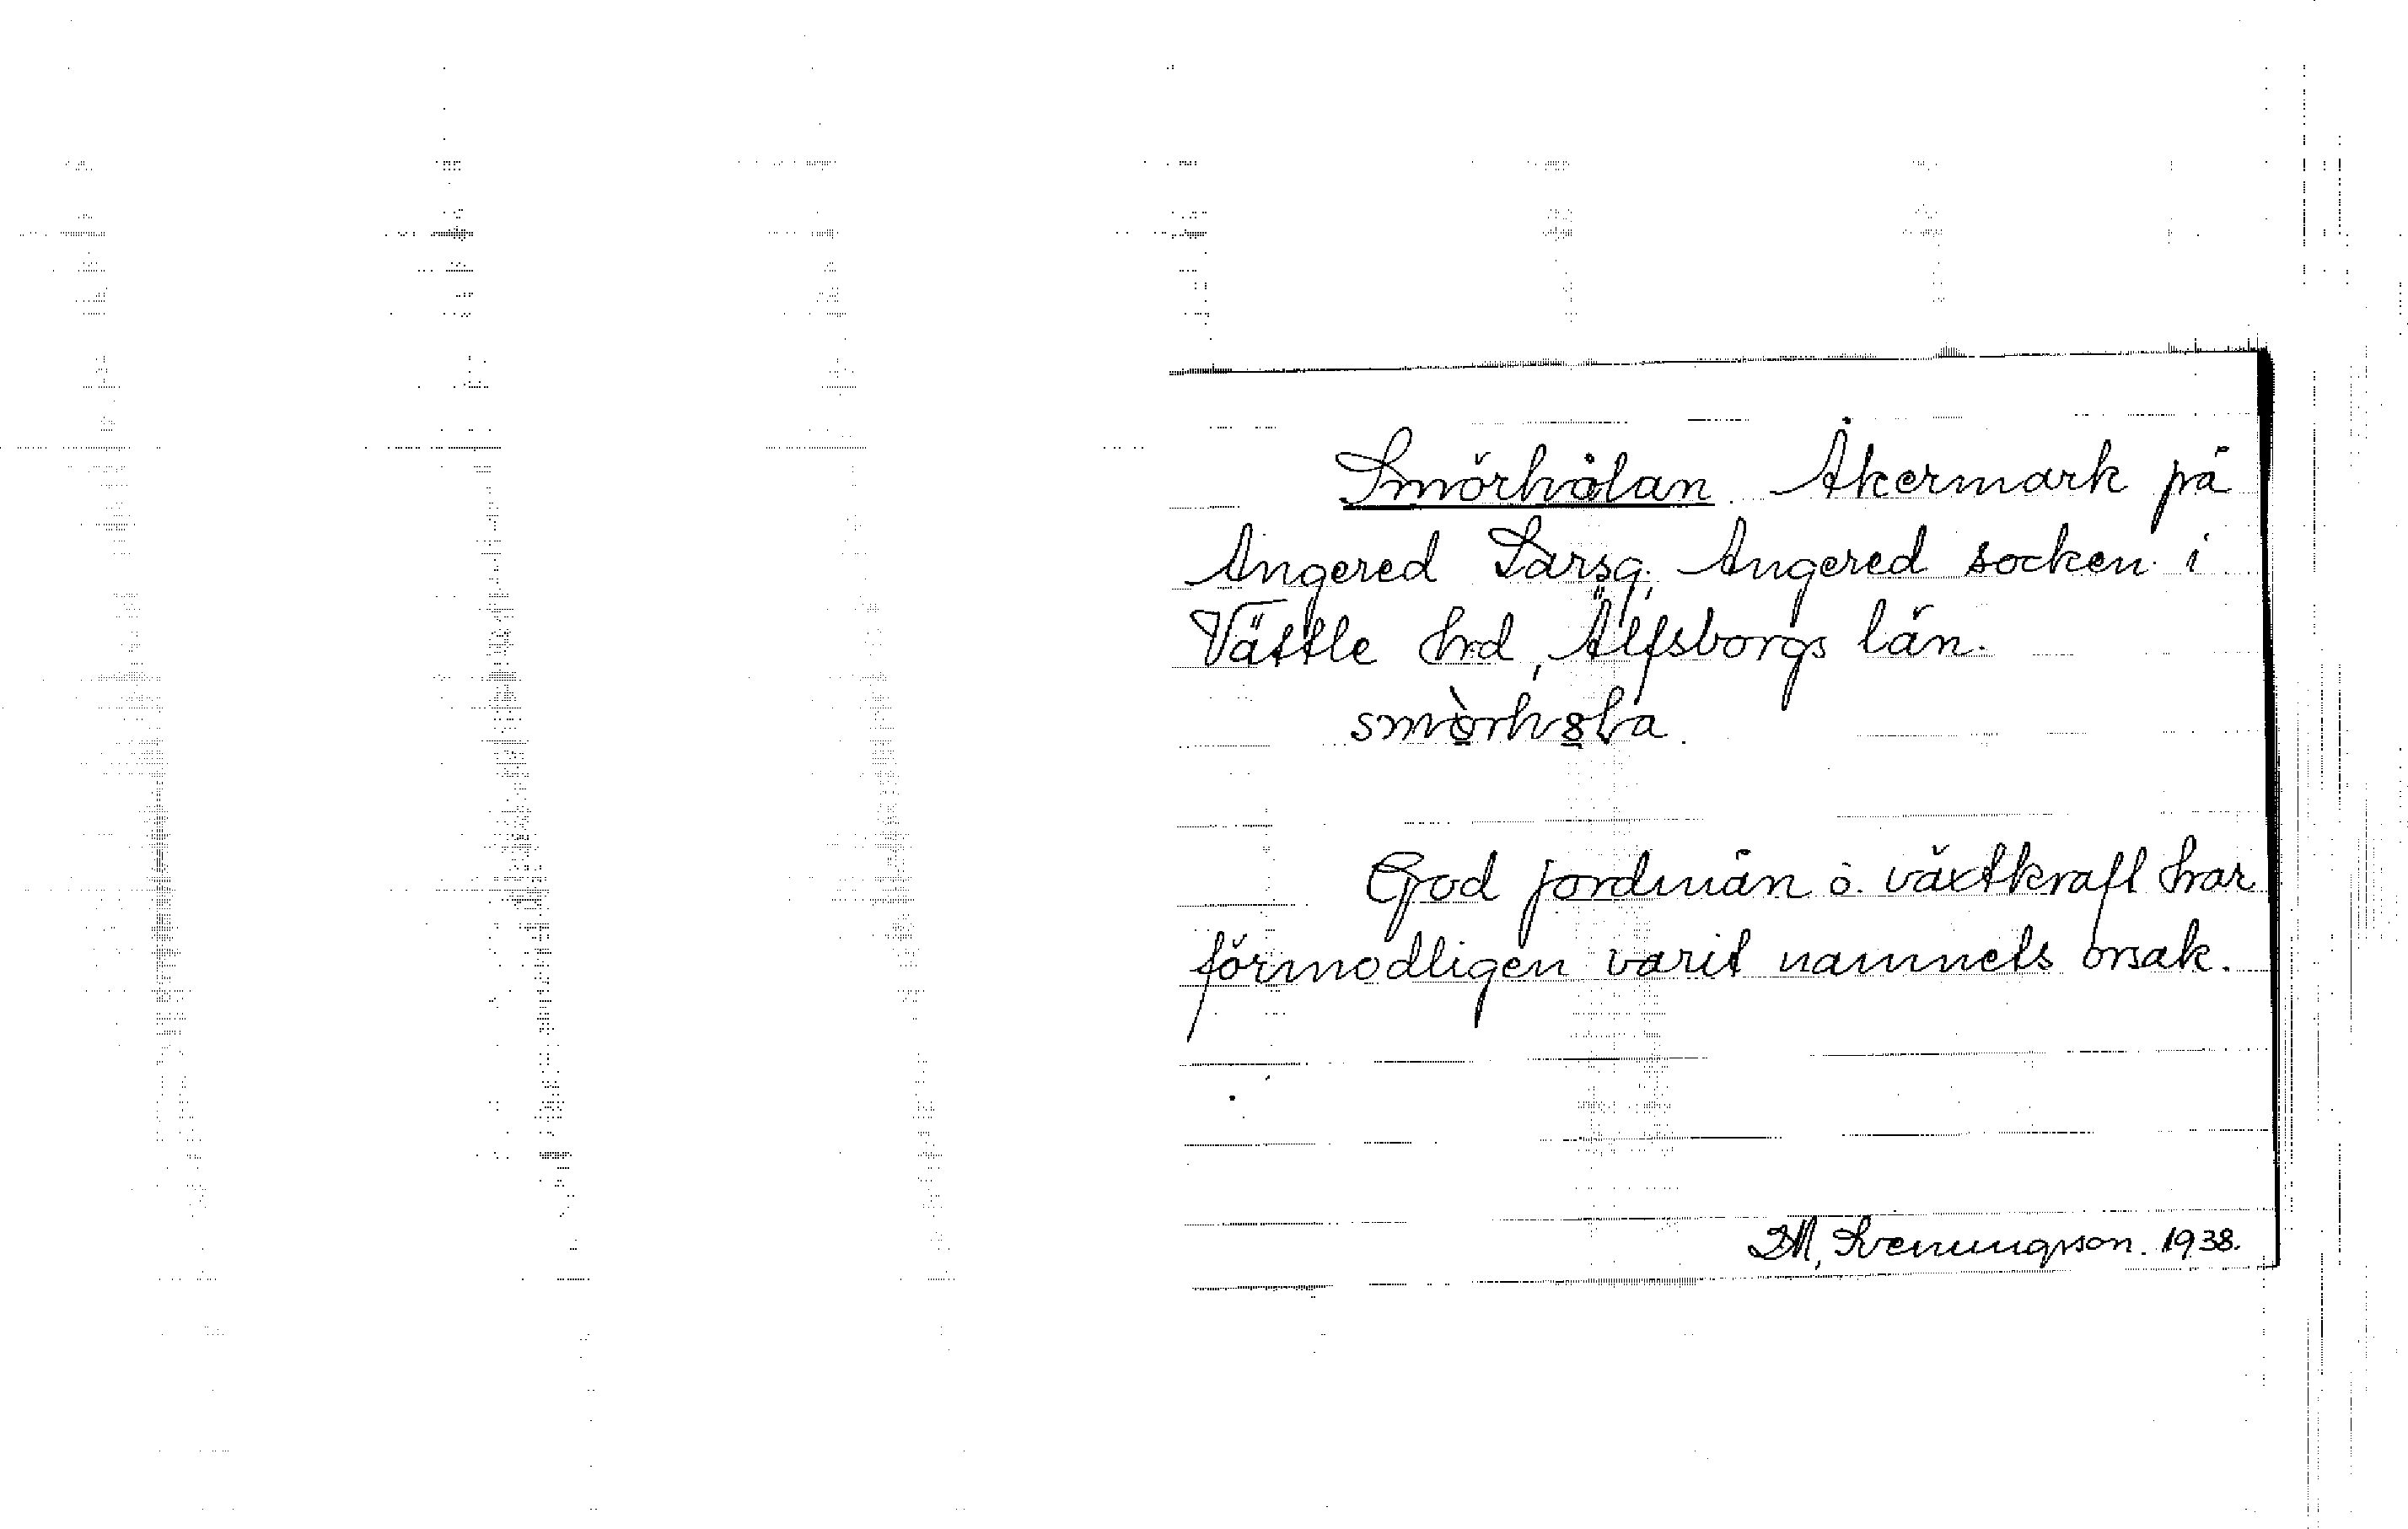 Smörhålan. Åkermark på
Angered Larsg. Angered socken i
Vättle hrd, Älfsborgs län.
God jordmån o. växtkraft har
förmodligen varit namnets orsak.
Svenungsson. 1938.